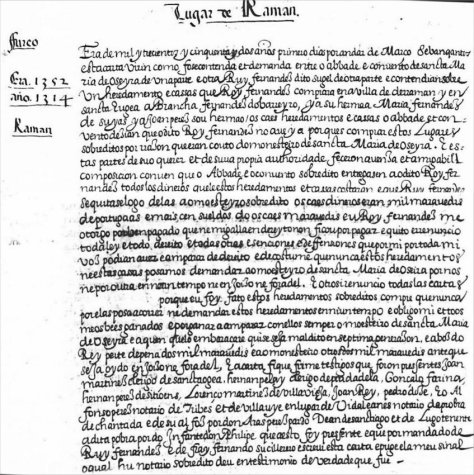 Lugar de Raman.
furco
Era. 1352
año. 1314
Raman
Era de mil y trecentos y cinquenta y dos años primero dias por andar de Março Sebangantes
esta carta viren como fose contenda et demanda entre o abbade e convento de sancta Ma
ria de Oseyra de una parte e ota Ruy fernandes dito supel de otra parte e contendian sobre
Un herdamento e casas que Rey fernandes comprara en a villa de de raman y en
sancta e a fernandes e ya su hermaa Maria fernandes
de e o abbade et con
vento dezian que o dito Rey fernandes no avya porque comprar estos Lugares
sobreditos por razon que eran couto do moesteyro de sancta Maria de Oseyra. E es
tas partes de suo querer et de sua propia authoridade, feceron avenza et amigabill
composicon conven que o Abbade e o convento sobredito entregasen a o dito Rey fer
nandes todos los dineros que les estos herdamentos et casas costaron e que Ruy fernandes
se quitase logo delas a o moesteyro sobredito os caes dineros eran mil maravedis
de portugaes e mais cen sueldos dos caes maravedis eu Rey fernandes me
otorgo por ben pagado que ne migalla en de
toda ley et todo derecho et todas otras esenciones e defensiones que por mi por toda mi
vos podian aver e amparar de derecho et de costume que nunca estos herdamentos
ne estas casas posamos demandar a o moesteyro de sancta Maria de Oseira por nos
ne por outra en ninun tempo ne en Joizo ne fora del. E otrosi renuncio todas las cartas
porque eu foy fato estos herdamentos sobreditos compry que nunca
por elas posa acorrer ni demandar estos herdamentos en niun tempo e obligo mi et toos
meos bees ganados e por ganar a amparar con ellos sempre o moesteiro de sancta Maria
de Oseyra e a quen quelo embarazare quise seja maldito en septima generazon, e a bos do
Rey peite de pena dos mil maravedis e a o monesteiro otros dos mil maravedis ante que
seja oydo en Joizo ne fora del, E a carta fique firme testigos que foron presentes Joan
martines clerigo de sanctiagoa, hernan pelaez clerigo de piedadela, Gonçalo farina,
hernan peres de ditieros, Lorenço martines de villarvieja, Joan Rey, pedro duse, Eo Al
fonso peres notario de Tribes et de villa uye en lugar de Vidal eanes notario de la probia
de chantada e de su al fos por don Arias peres pardo Dean de sanctiago et de Lugo tenente
a dita pobra por do Infante don Philipe que a esto foy presente e que por mandado de
Rey fernandes, E de fray fernando suscileiro escreui esta carta e pige en ela meu sinal
o qual hu notario sobredito deu en testimonio de verdade que, fue